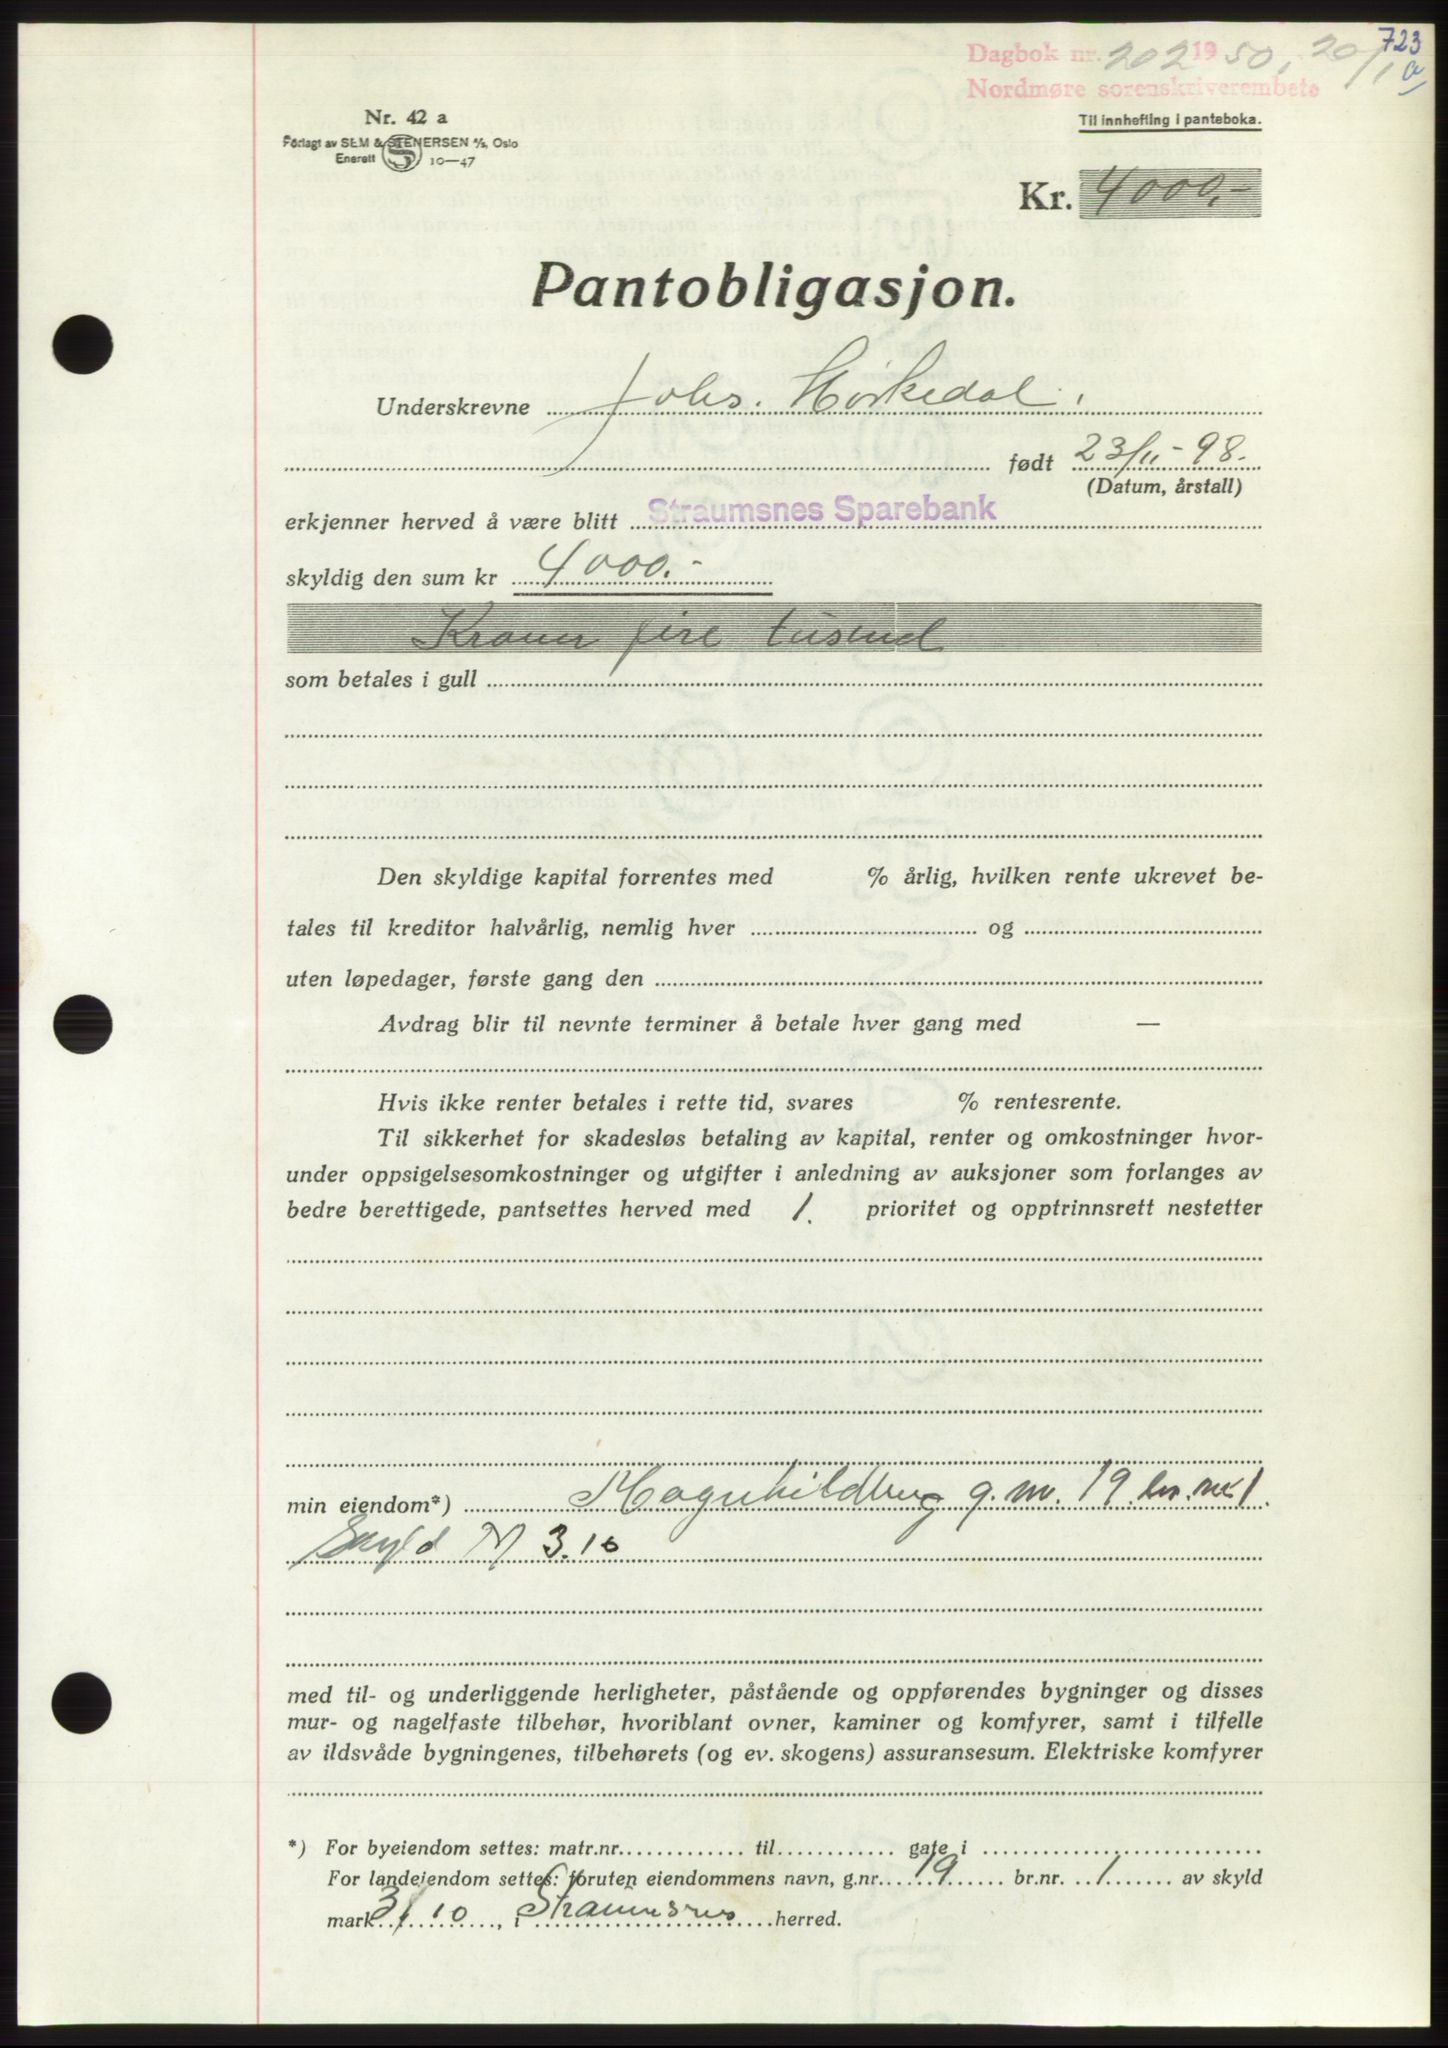 723
a
Dagbok nr. 202 1950, 20/1
Nordmøre sorenskriverembete
Nr. 42 a
Til innhefting i panteboka.
Forlagt av SEM & STENERSEN A/S, Oslo
Enerett S 10—47
Kr. 4000,-
Pantobligasjon.
Underskrevne Johs. Hørkedal,
født 23/11-98.
(Datum, årstall)
erkjenner herved å være blitt Straumsnes Sparebank
skyldig den sum kr 4000.-
Kroner fire tusend
som betales i gull
Den skyldige kapital forrentes med % årlig, hvilken rente ukrevet be-
tales til kreditor halvårlig, nemlig hver og
uten løpedager, første gang den
Avdrag blir til nevnte terminer å betale hver gang med —
Hvis ikke renter betales i rette tid, svares % rentesrente.
Til sikkerhet for skadesløs betaling av kapital, renter og omkostninger hvor-
under oppsigelsesomkostninger og utgifter i anledning av auksjoner som forlanges av
bedre berettigede, pantsettes herved med 1. prioritet og opptrinnsrett nestetter
min eiendom*) Magnhildberg g.nr. 19 br.nr. 1.
Skyld M 3.10
med til- og underliggende herligheter, påstående og oppførendes bygninger og disses
mur- og nagelfaste tilbehør, hvoriblant ovner, kaminer og komfyrer, samt i tilfelle
av ildsvåde bygningenes, tilbehørets (og ev. skogens) assuransesum. Elektriske komfyrer
*) For byeiendom settes: matr.nr. til gate i
For landeiendom settes: foruten eiendommens navn, g.nr. 19 br.nr. 1 av skyld
mark 3/10, i Straumsnes herred.